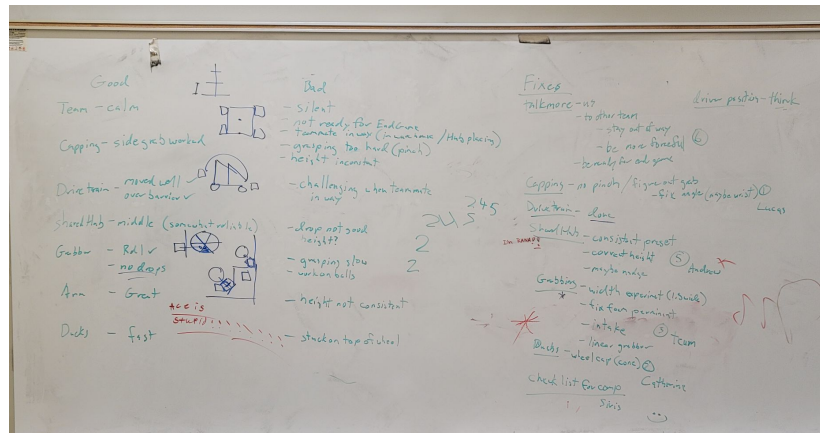 Good
Team - calm
Capping - side grab worked
Drivetrain - moved well
over barrier ✓
Shared Hub - middle (somewhat reliable)
Grabber - Roll ✓
- no drops
Arm - Great
Ace is
stupid
Ducks - fast
I
Bad
- silent
- not ready for EndGame
- teammate in way (in warehouse / Hub placing)
- grasping too hard (pinch)
- height inconsistant
- challenging when teammate
in way
- drop not good
height?
- grasping slow
- work on balls
- height not consistent
- stack on top of wheel
245
245
2
2
Fixes
talk more - us
- to other team
- stay out of way
- be more forceful ⑥
- be ready for end game
Capping - no pinch / figure out grab
- fix angle (maybe wrist) ①
Lucas
Drivetrain - done
Shared Hub - consistant preset
- correct height ⑤
Andrew
- maybe nudge
Grabbing - width experiment
- fix foam
- intake ③ Team
- linear grabber
Ducks - wheel cap (cone) ②
Catherine
Checklist for comp
driver position - think